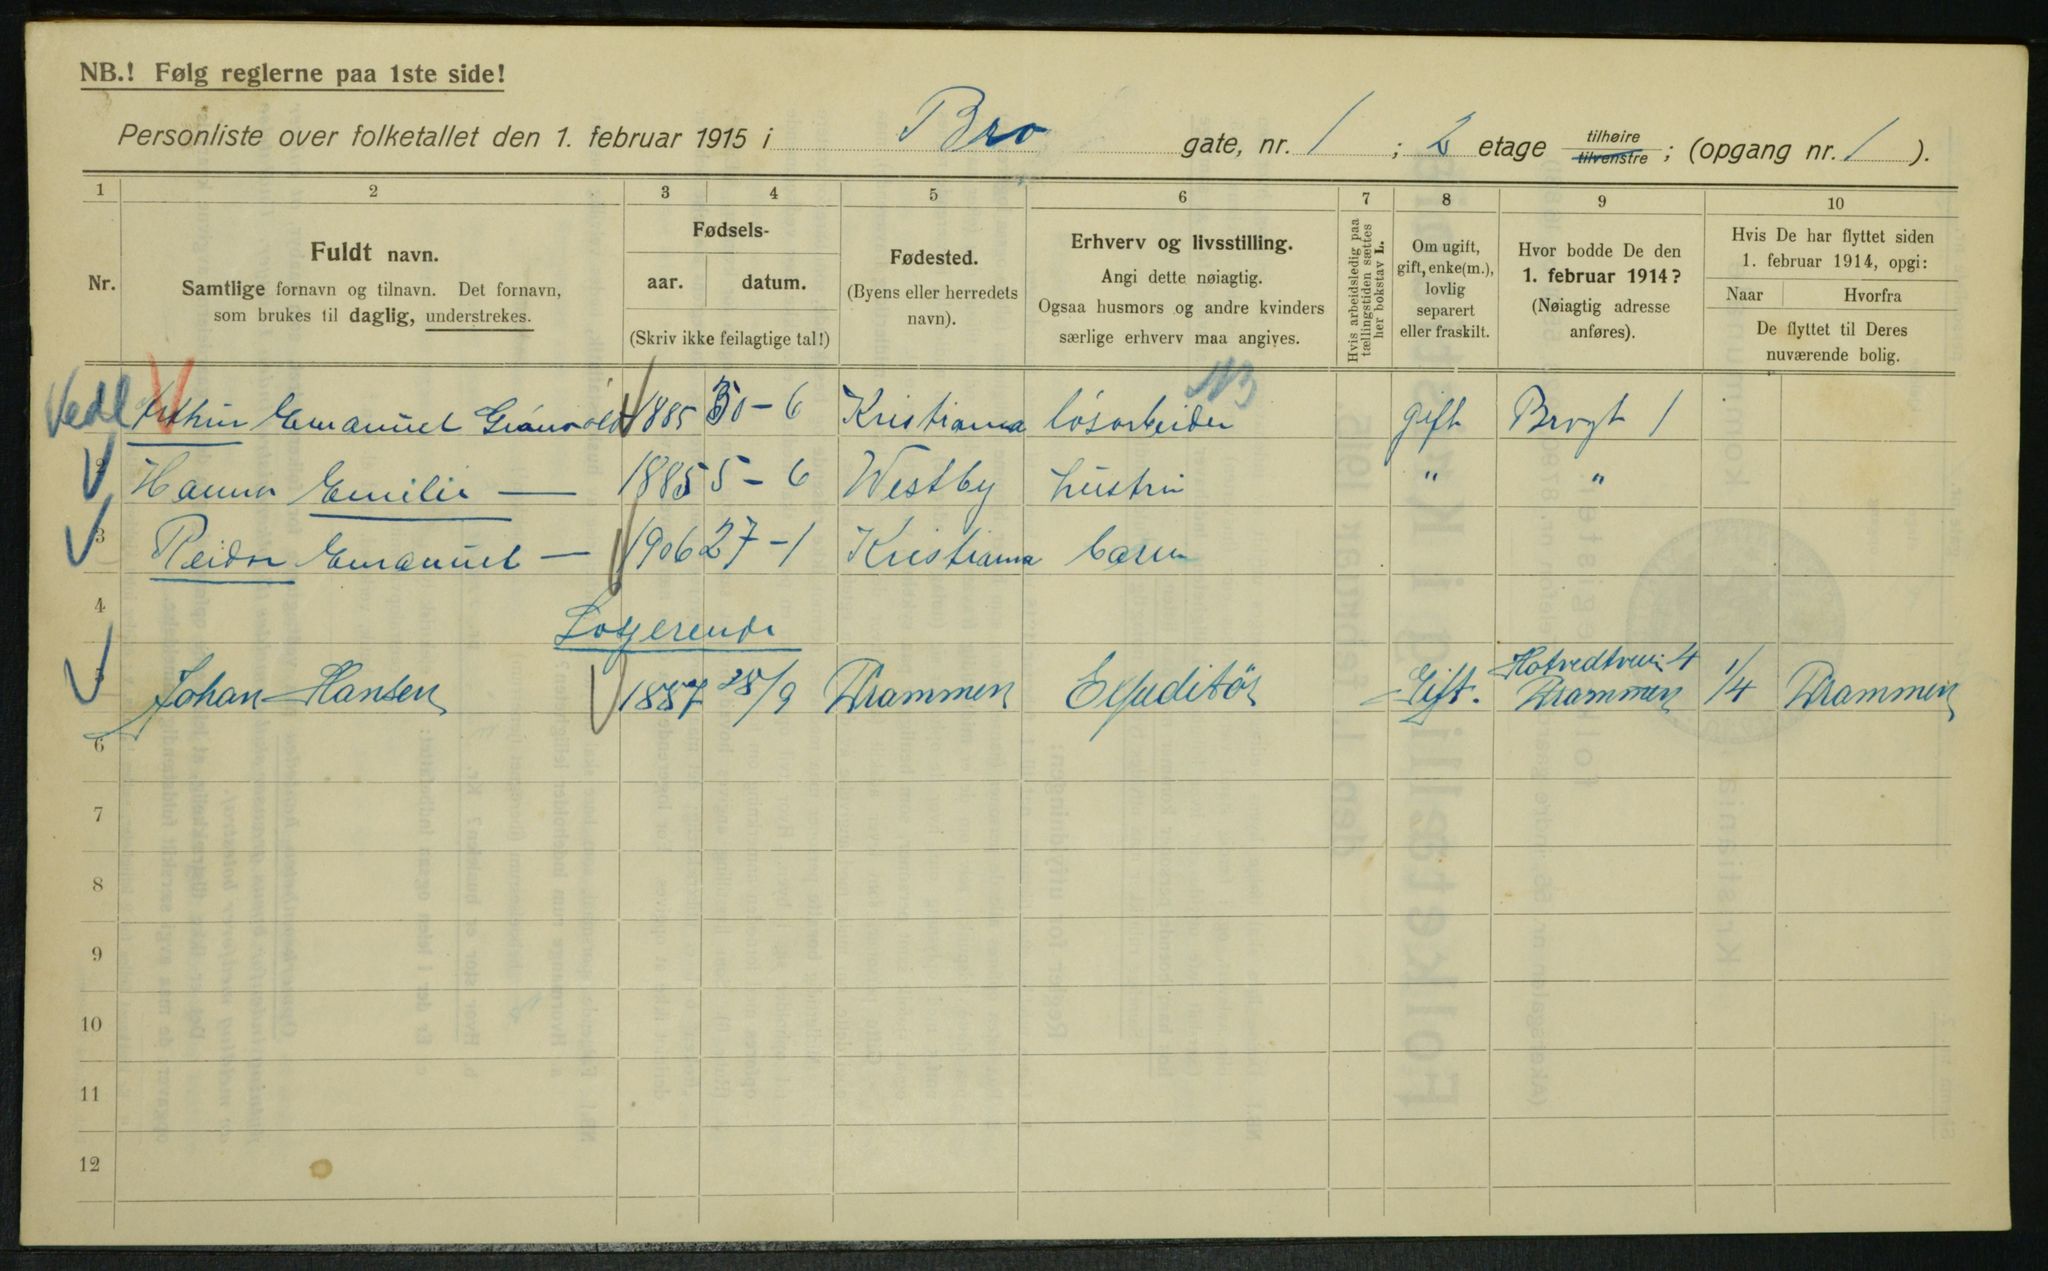 NB.! Følg reglerne paa 1ste side!
Personliste over folketallet den 1. februar 1915 i Bro gate, nr. 1 ; 2 etage tilhøire tilvenstre ; (opgang nr. 1 ).
1 2 3 4 5 6 7 8 9 10
Nr.
Fuldt navn.
Samtlige fornavn og tilnavn. Det fornavn,
som brukes til daglig, understrekes.
Fødsels-
aar. datum.
(Skriv ikke feilagtige tal!)
Fødested.
(Byens eller herredets
navn).
Erhverv og livsstilling.
Angi dette nøiagtig.
Ogsaa husmors og andre kvinders
særlige erhverv maa angives.
Hvis arbeidsledig paa
tællingstiden sættes
her bokstav L.
Om ugift,
gift, enke(m.),
lovlig
separert
eller fraskilt.
Hvor bodde De den
1. februar 1914?
(Nøiagtig adresse
anføres).
Hvis De har flyttet siden
1. februar 1914, opgi:
Naar Hvorfra
De flyttet til Deres
nuværende bolig.
Vedl Arthur Emanuel 1885 30-6 Kristiania løsarbeider gift Brogt 1
2 Hanna Emilie — 1885 5-6 Westby hustru " "
3 Reidar Emanuel — 1906 27-1 Kristiania barn
4 Losjerende
5 Johan Hansen 1887 28/9 Drammen Expeditør Gift. Hotvedtveien 4 Drammen 1/4 Drammen
6
7
8
9
10
11
12